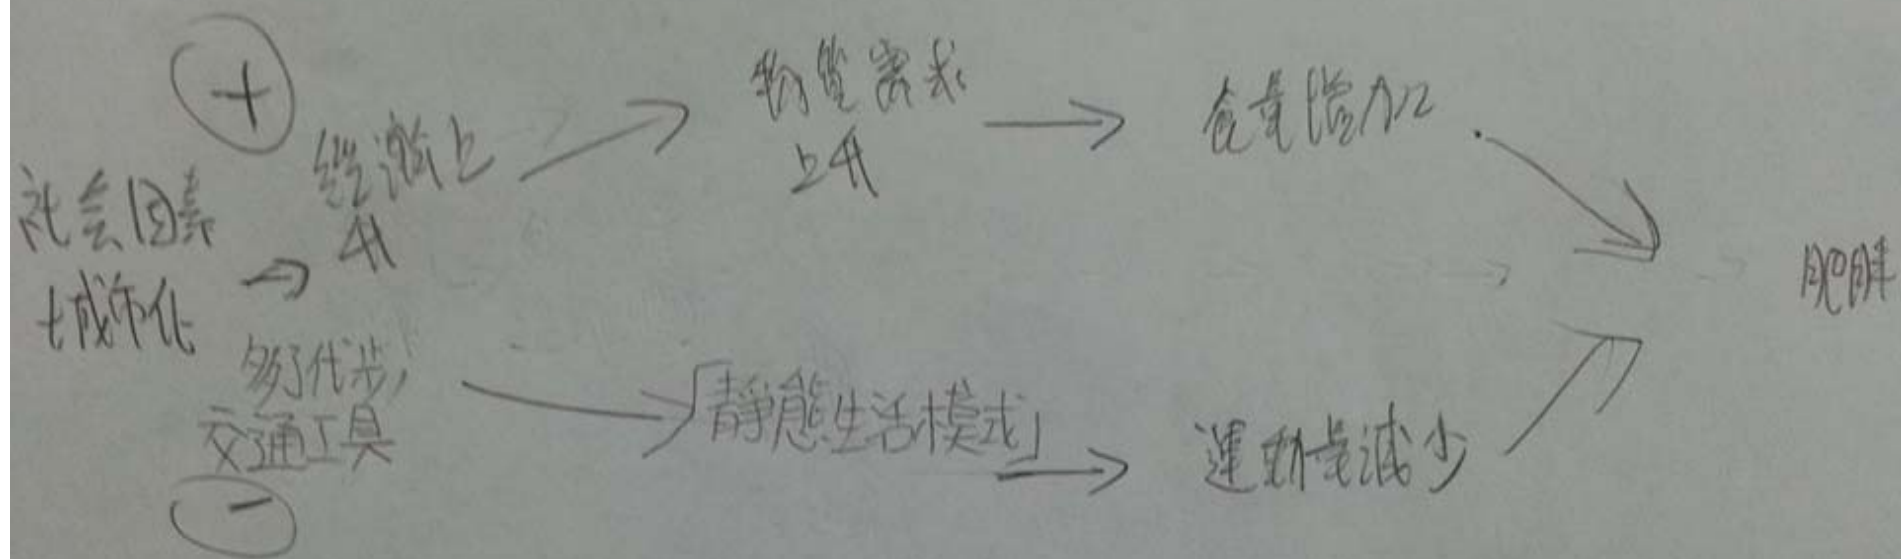 +
社會因素
城市化
經濟上
升
物質需求
上升
食量增加
多了代步
交通工具
-
「靜態生活模式」
運動量減少
肥胖